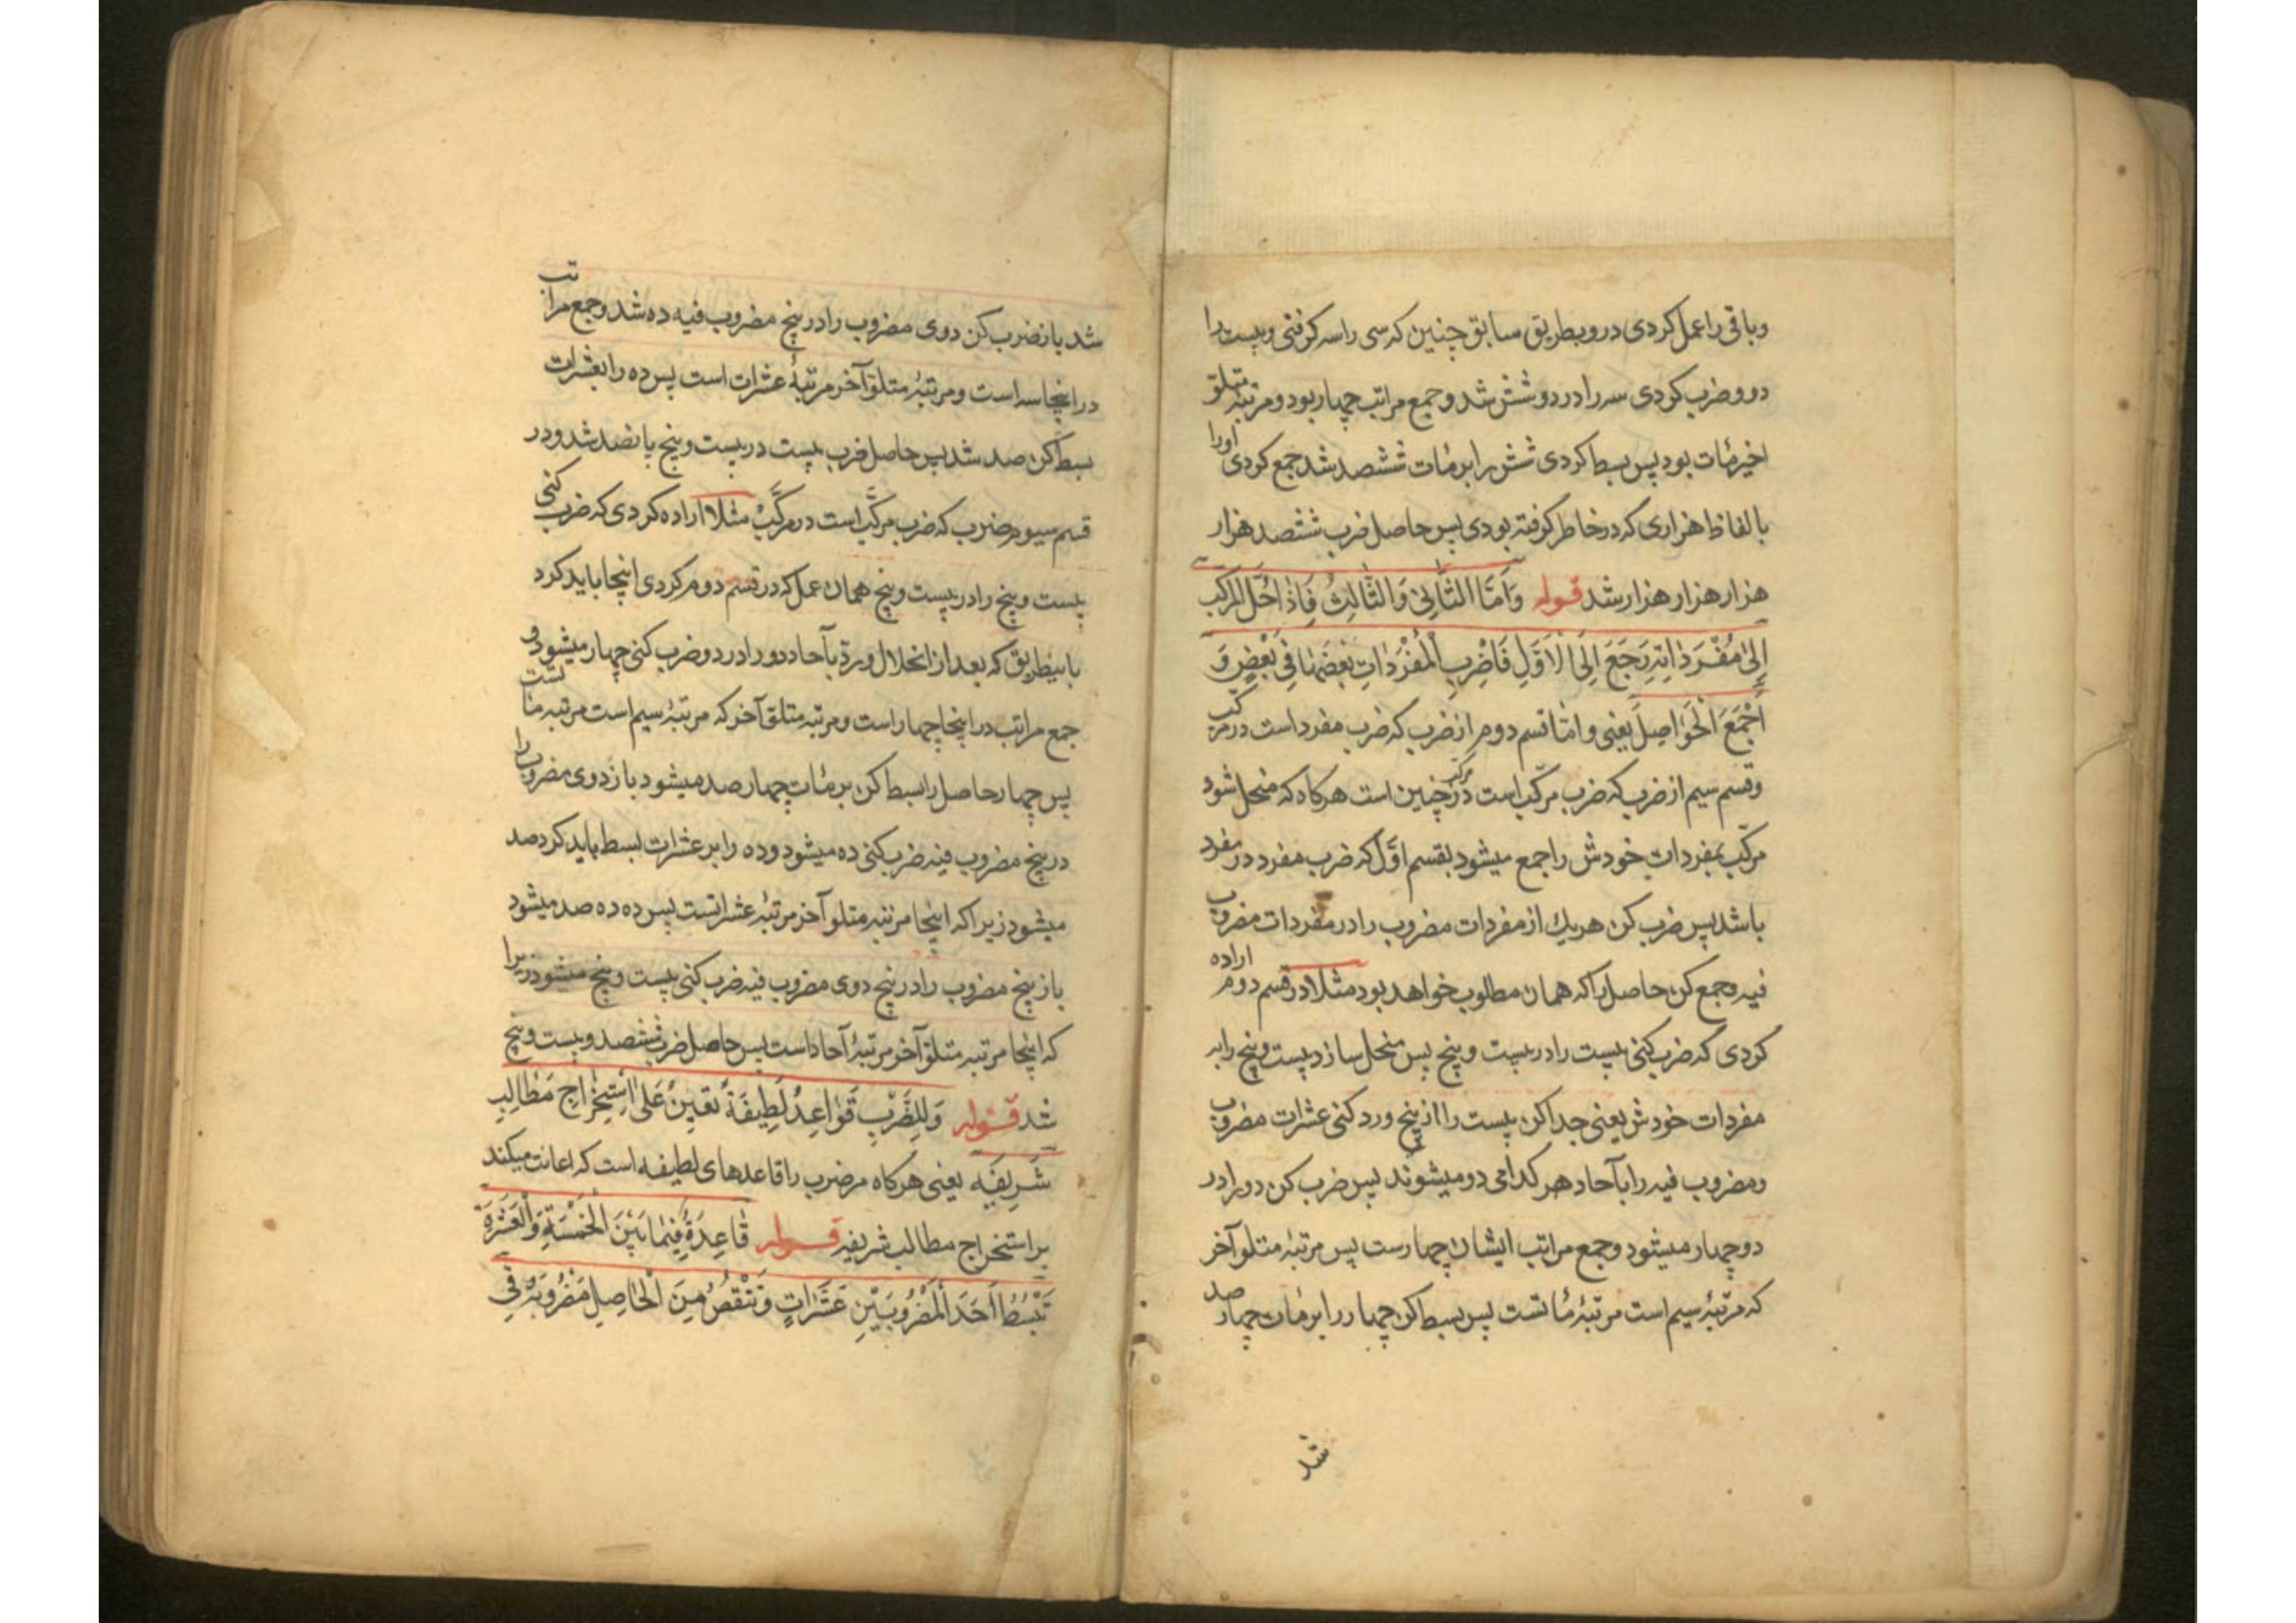 وباقی را عمل کردی در و بطریق سابق چنین که سی را سه گرفتی و بیست را
دو و ضرب کردی سه را در دو شش شد و جمع مراتب چهار بود و مرتبه متلوّ
اخیر مُات بود پس بسط کردی شش را بر مُات ششصد شد جمع کردی او را
با لفاظ هزاری که در خاطر گرفته بودی پس حاصل ضرب ششصد هزار
هزار هزار هزار شد قوله وَاَمَّا الثَّانِیْ وَالثَّالِثُ فَاِذَا حُلَّ الْمُرَکَّب
اِلیٰ مُفْرَدَاتِهِ رَجَعَ اِلَی الْاَوَّلِ فَاضْرِبِ الْمُفْرَدَاتِ بَعْضَهَا فِی بَعْضٍ وَ
اجْمَعِ الْحَوَاصِلَ یعنی و امّا قسم دوم از ضرب که ضرب مفرد است در مرکّب
و قسم سیم از ضرب که ضرب مرکّب است در مرکّب چنین است هرکاه که منحل شود
مرکّب بمفردات خودش راجع میشود بقسم اوّل که ضرب مفرد در مفرد
باشد پس ضرب کن هریك از مفردات مضروب را در مفردات مضروب
فیه و جمع کن حاصل را که همان مطلوب خواهد بود مثلا در قسم دوم اراده
کردی که ضرب کنی بیست را در بیست و پنج پس منحل ساز بیست و پنج را به
مفردات خودش یعنی جدا کن بیست را از پنج و رد کنی عشرات مضروب
و مضروب فیه را بآحاد هر کدامی دو میشوند پس ضرب کن دو را در
دو چهار میشود و جمع مراتب ایشان چهارست پس مرتبهٔ متلو آخر
که مرتبهٔ سیم است مرتبهٔ مُاتست پس بسط کن چهار را بر مُات چهار صد
شد
شد باز ضرب کن دوی مضروب را در پنج مضروب فیه ده شد و جمع مراتب
در اینجا سه است و مرتبهٔ متلوّ آخر مرتبهٔ عشرات است پس ده را بعشرات
بسط کن صد شد پس حاصل ضرب بیست در بیست و پنج پانصد شد و در
قسم سیوم ضرب که ضرب مرکّب است در مرکّب مثلا اراده کردی که ضرب کنی
بیست و پنج را در بیست و پنج همان عمل که در قسم دوم کردی اینجا باید کرد
باینطریق که بعد از انحلال و ردّ بآحاد دو را در دو ضرب کنی چهار میشود و
جمع مراتب در اینجا چهار است و مرتبه متلوّ آخر که مرتبهٔ سیم است مرتبه مُاتست
پس چهار حاصل را بسط کن بر مُات چهار صد میشود باز دوی مضروب را
در پنج مضروب فیه ضرب کنی ده میشود و ده را بر عشرات بسط باید کرد صد
میشود زیرا که اینجا مرتبه متلو آخر مرتبهٔ عشراتست پس ده ده صد میشود
باز پنج مضروب را در پنج دوی مضروب فیه ضرب کنی بیست و پنج میشود زیرا
که اینجا مرتبه متلوّ آخر مرتبهٔ آحاد است پس حاصل ضرب ششصد و بیست و پنج
شد قوله وَلِلضَّرْبِ قَوَاعِدُ لَطِیفَةٌ تُعِینُ عَلَی اسْتِخْرَاجِ مَطَالِبَ
شَرِیفَه یعنی هرکاه مر ضرب را قاعدهای لطیفه است که اعانت میکند
بر استخراج مطالب شریفه قوله قَاعِدَةٌ فِیمَا بَیْنَ الْخَمْسَةِ وَالْعَشَرَةِ
تَبْسُطُ اَحَدَ الْمَضْرُوبَیْنِ عَشَرَاتٍ وَتَنْقُصُ مِنَ الْحَاصِلِ مَضْرُوبَهُ فِی